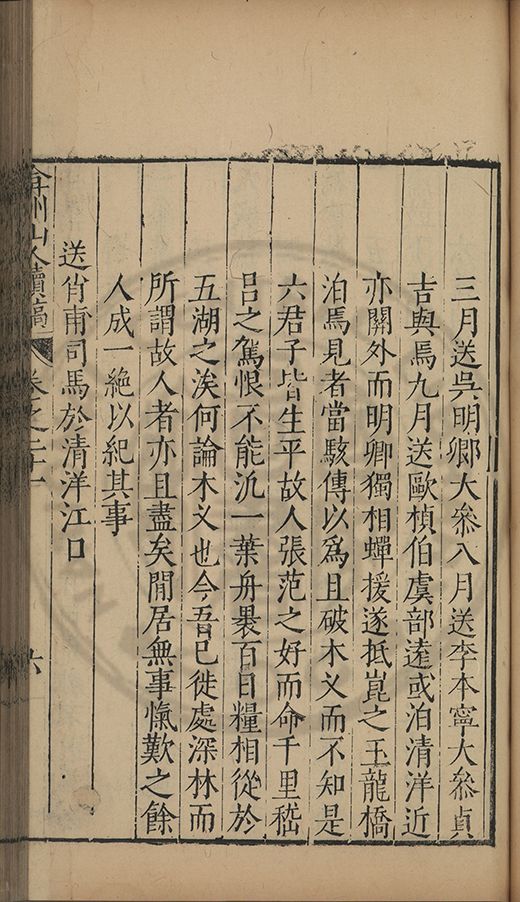 三月送吳明卿大叅八月送李本寧大叅貞
吉與焉九月送歐楨伯虞部逺或泊清洋近
亦關外而明卿獨相蟬援遂抵崑之王龍橋
泊焉見者當駭傳以爲且破木义而不知是
六君子皆生平故人張范之好而命千里嵇
呂之駕恨不能汎一葉舟褁百日糧相從於
五湖之涘何論木义也今吾已徙處深林而
所謂故人者亦且盡矣閒居無事愾歎之餘
人成一絶以紀其事
送肖甫司馬於清洋江口
弇州山人續稿
卷之二十
六